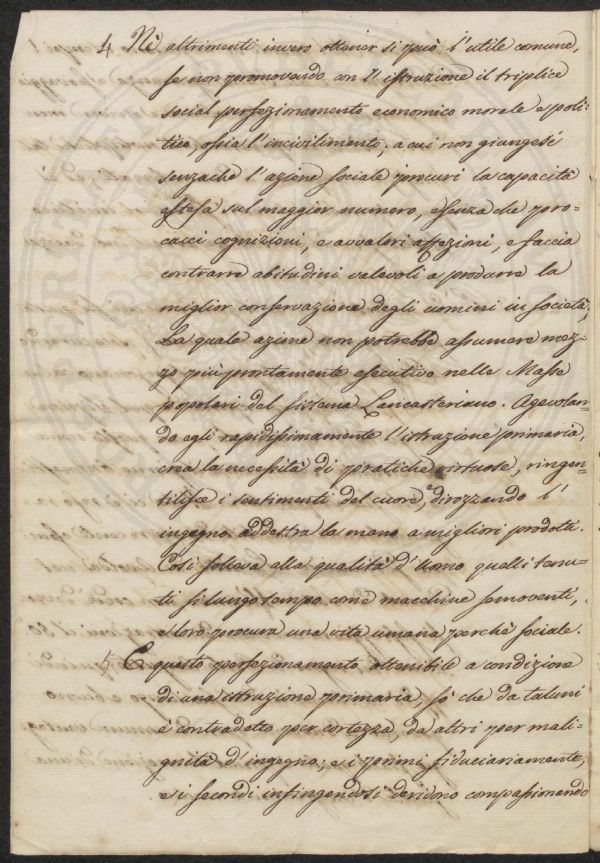 4 Nè altrimenti invero ottener si può l'utile comune,
se non promovendo con l'istruzione il triplice
social perfezionamento economico morale e poli-
tico, ossia l'incivilimento; a cui non giungesi
senzachè l'azione sociale procuri la capacità
estesa sul maggior numero, e senza che pro-
cacci cognizioni, e avvalori affezioni, e faccia
contrarre abitudini valevoli a produrre la
miglior conservazione degli uomini in società.
La quale azione non potrebbe assumere mez-
zo più prontamente esecutivo nelle Masse
popolari del sistema Lancasteriano. Agevolan-
do egli rapidissimamente l'istruzione primaria,
crea la necessità di pratiche virtuose, ringen-
tilisce i sentimenti del cuore, e dirozzando l'
ingegno addestra la mano a migliori prodotti.
Così solleva alla qualità d'Uomo quelli tenu-
ti sì lungo tempo come macchine semoventi,
e loro procura una vita umana perchè sociale.
5 E questo perfezionamento ottenibile a condizione
di una istruzione primaria, so che da taluni
è contradetto per cortezza, da altri per mali-
gnità d'ingegno; e i primi fiduciariamente,
e i secondi infingendosi deridono compassionando